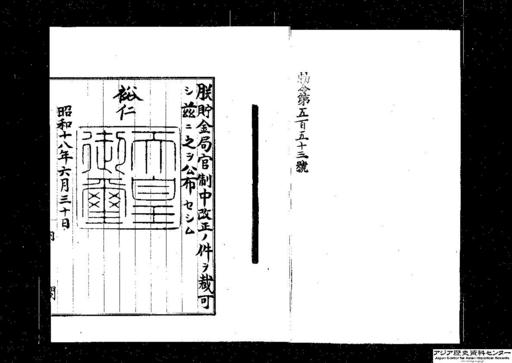 勅令第五百五十三號
朕貯金局官制中改正ノ件ヲ裁可
シ茲ニ之ヲ公布セシム
裕仁
天皇御璽
昭和十八年六月三十日
内閣
アジア歴史資料センター
Japan Center for Asian Historical Records